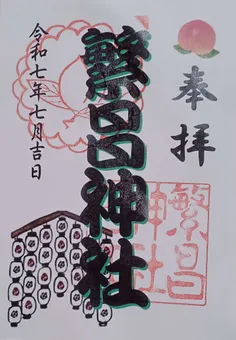 奉拝
繁昌神社
令和七年七月吉日
繁昌
神社